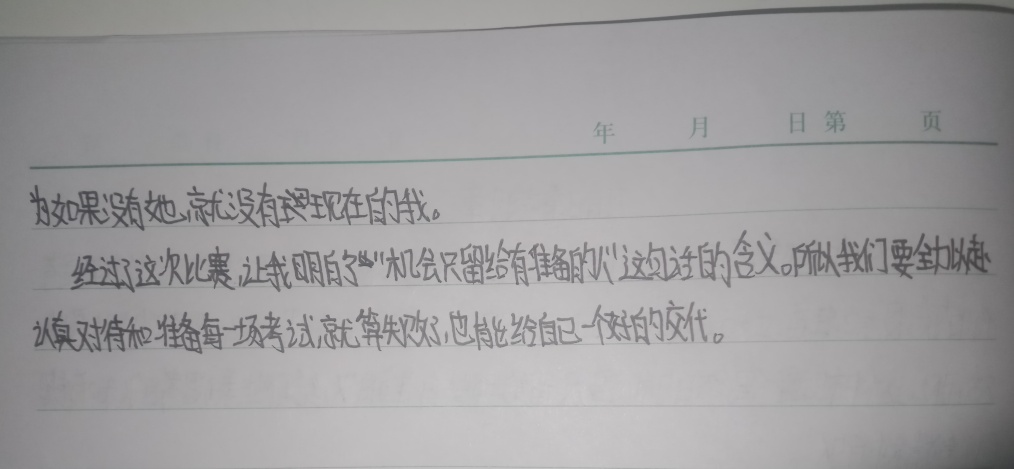 年 月 日 第 页
为如果没有她,就没有现在的我。
经过了这次比赛,让我明白了"机会只留给有准备的人"这句话的含义。所以我们要全力以赴
认真对待和准备每一场考试,就算失败了,也能给自己一个好的交代。